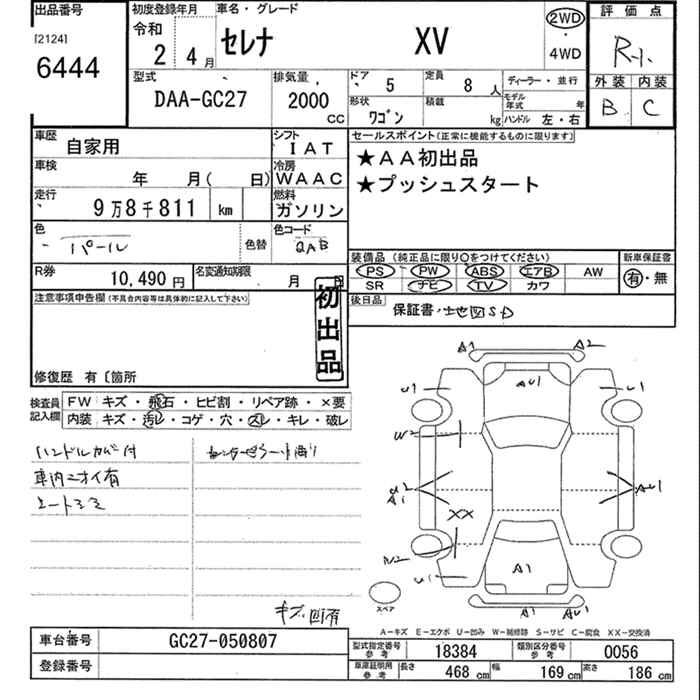 出品番号
[2124]
6444
初度登録年月
令和
2 4月
車名・グレード
セレナ XV
2WD
・
4WD
評価点
R-1
外装 内装
B C
型式
DAA-GC27
排気量
2000
CC
ドア 5
形状 ワゴン
定員 8人
積載 kg
ディーラー・並行
モデル年式 年
ハンドル 左・右
車歴 自家用
シフト IAT
車検 年 月( 日)
冷房 WAAC
走行 9万8千811 km
燃料 ガソリン
色 パール
色替
色コード QAB
R券 10,490円
名変通知期限 月 日
セールスポイント(正常に機能するものに限ります)
★AA初出品
★プッシュスタート
装備品(純正品に限り○をつけてください)
PS PW ABS エアB AW
SR ナビ TV カワ
新車保証書
有・無
後日品 保証書・地図SD
注意事項申告欄(不具合内容等は具体的に記入して下さい)
初出品
修復歴 有〔箇所
検査員記入欄
FW キズ・飛石・ヒビ割・リペア跡・×要
内装 キズ・汚レ・コゲ・穴・スレ・キレ・破レ
ハンドルカバー付
車内ニオイ有
シートシミ
キズ凹有
A1 A2
AU1
U1 U1
W2
U2
A1
AU1
XX
W2
U1
A1
A1 AU1
スペア
A-キズ E-エクボ U-凹み W-補修跡 S-サビ C-腐食 XX-交換済
車台番号 GC27-050807
登録番号
型式指定番号参考 18384
類別区分番号参考 0056
車庫証明用参考 長さ 468cm 幅 169cm 高さ 186cm